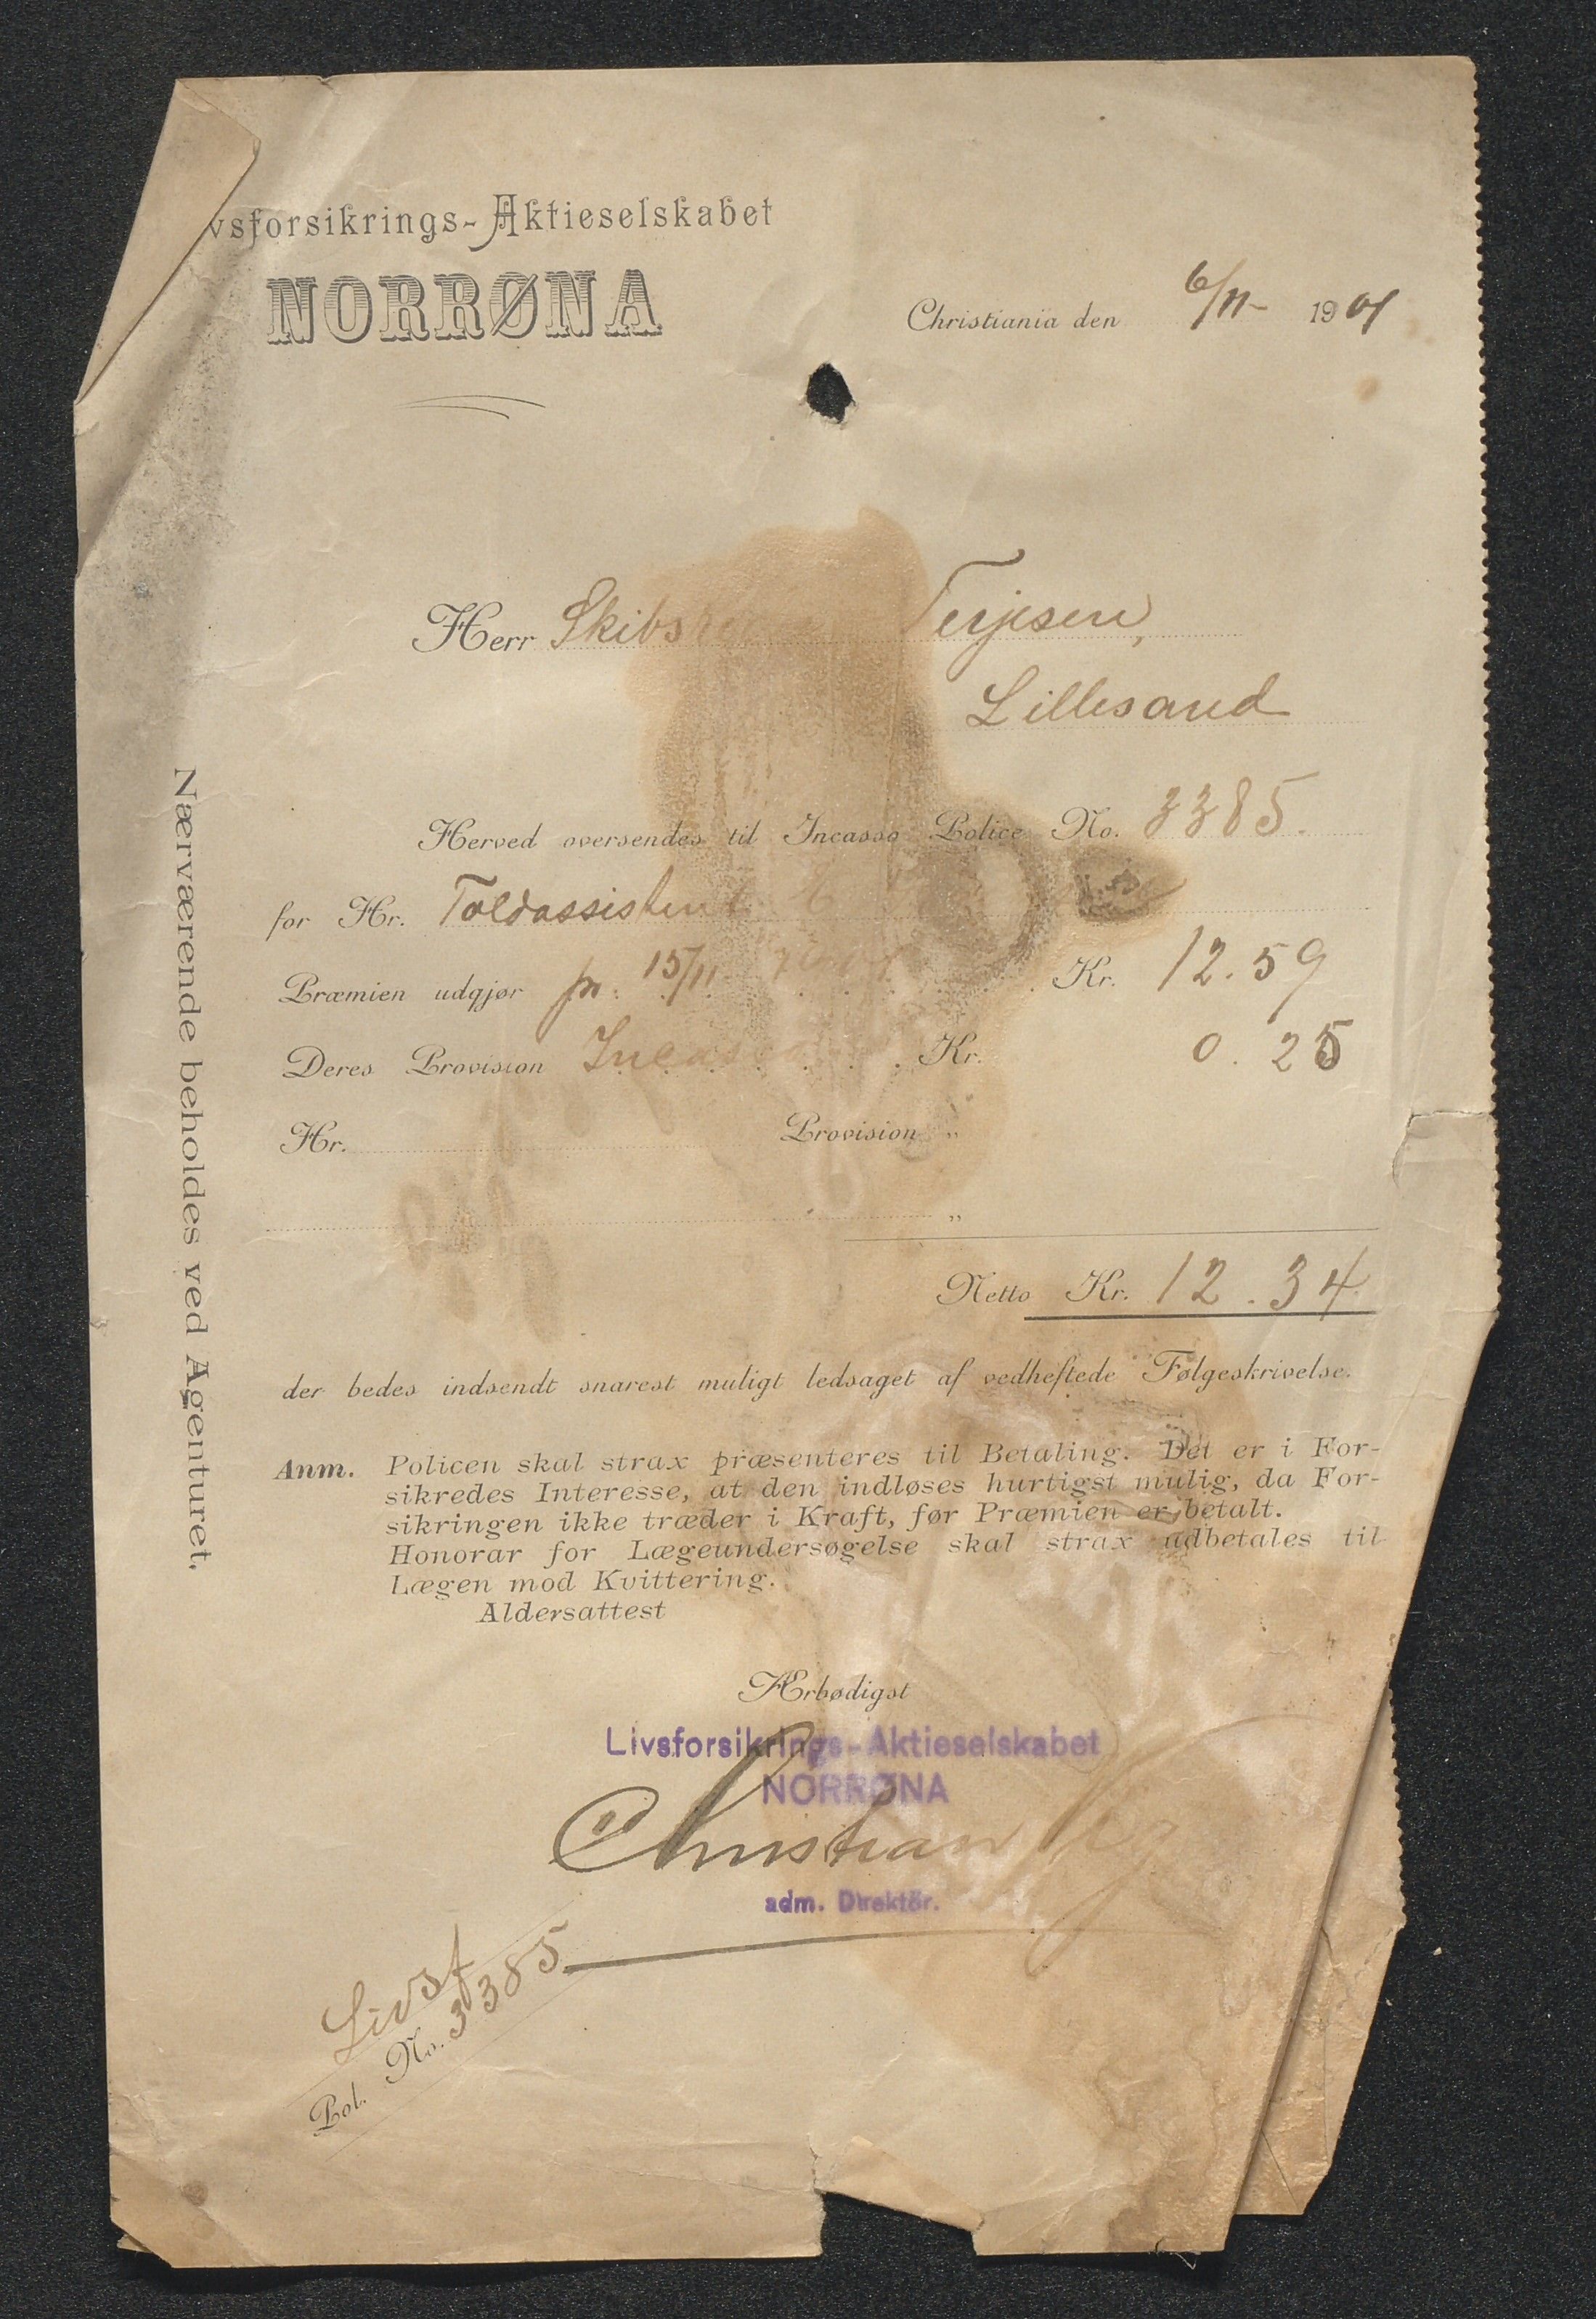 vsforsikrings-Aktieselskabet
NORRØNA
Christiania den 6/11- 1901
Herr Terjesen,
Lillesand
Herved oversendes til Incasso Police No. 3385.
for Hr. Toldassistent
Præmien udgjør pr. 15/11 Kr. 12.59
Deres Provision Incasso Kr. 0.25
Hr. Provision "
"
Netto Kr. 12.34
der bedes indsendt snarest muligt ledsaget af vedheftede Følgeskrivelse.
Anm. Policen skal strax præsenteres til Betaling. Det er i For-
sikredes Interesse, at den indløses hurtigst mulig, da For-
sikringen ikke træder i Kraft, før Præmien er betalt.
Honorar for Lægeundersøgelse skal strax udbetales til
Lægen mod Kvittering.
Aldersattest
Ærbødigst
Livsforsikrings-Aktieselskabet
NORRØNA
Christian
adm. Direktör.
Livsf
Pol. No. 3385
Nærværende beholdes ved Agenturet.